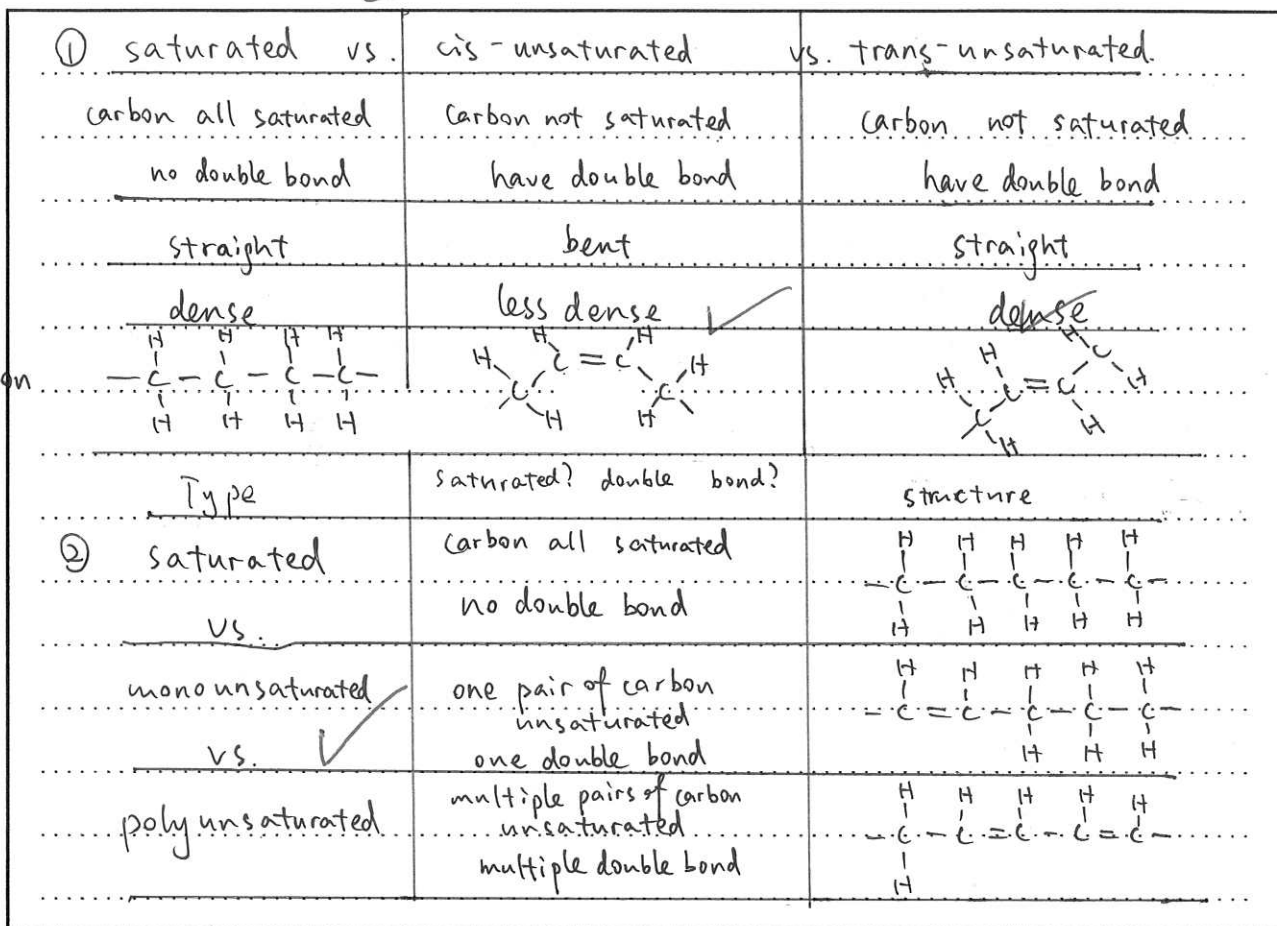 ① saturated vs. cis-unsaturated vs. trans-unsaturated.
carbon all saturated carbon not saturated carbon not saturated
no double bond have double bond have double bond
straight bent straight
dense less dense dense
H H H H H H H C
on - C - C - C - C - H C = C H H C = C H
H H H H C H H C C H H
Type saturated? double bond? structure
② saturated carbon all saturated H H H H H
no double bond - C - C - C - C - C -
vs. H H H H H
mono unsaturated one pair of carbon H H H H H
unsaturated - C = C - C - C - C -
vs. one double bond H H H
poly unsaturated multiple pairs of carbon H H H H H
unsaturated - C - C = C - C = C -
multiple double bond H